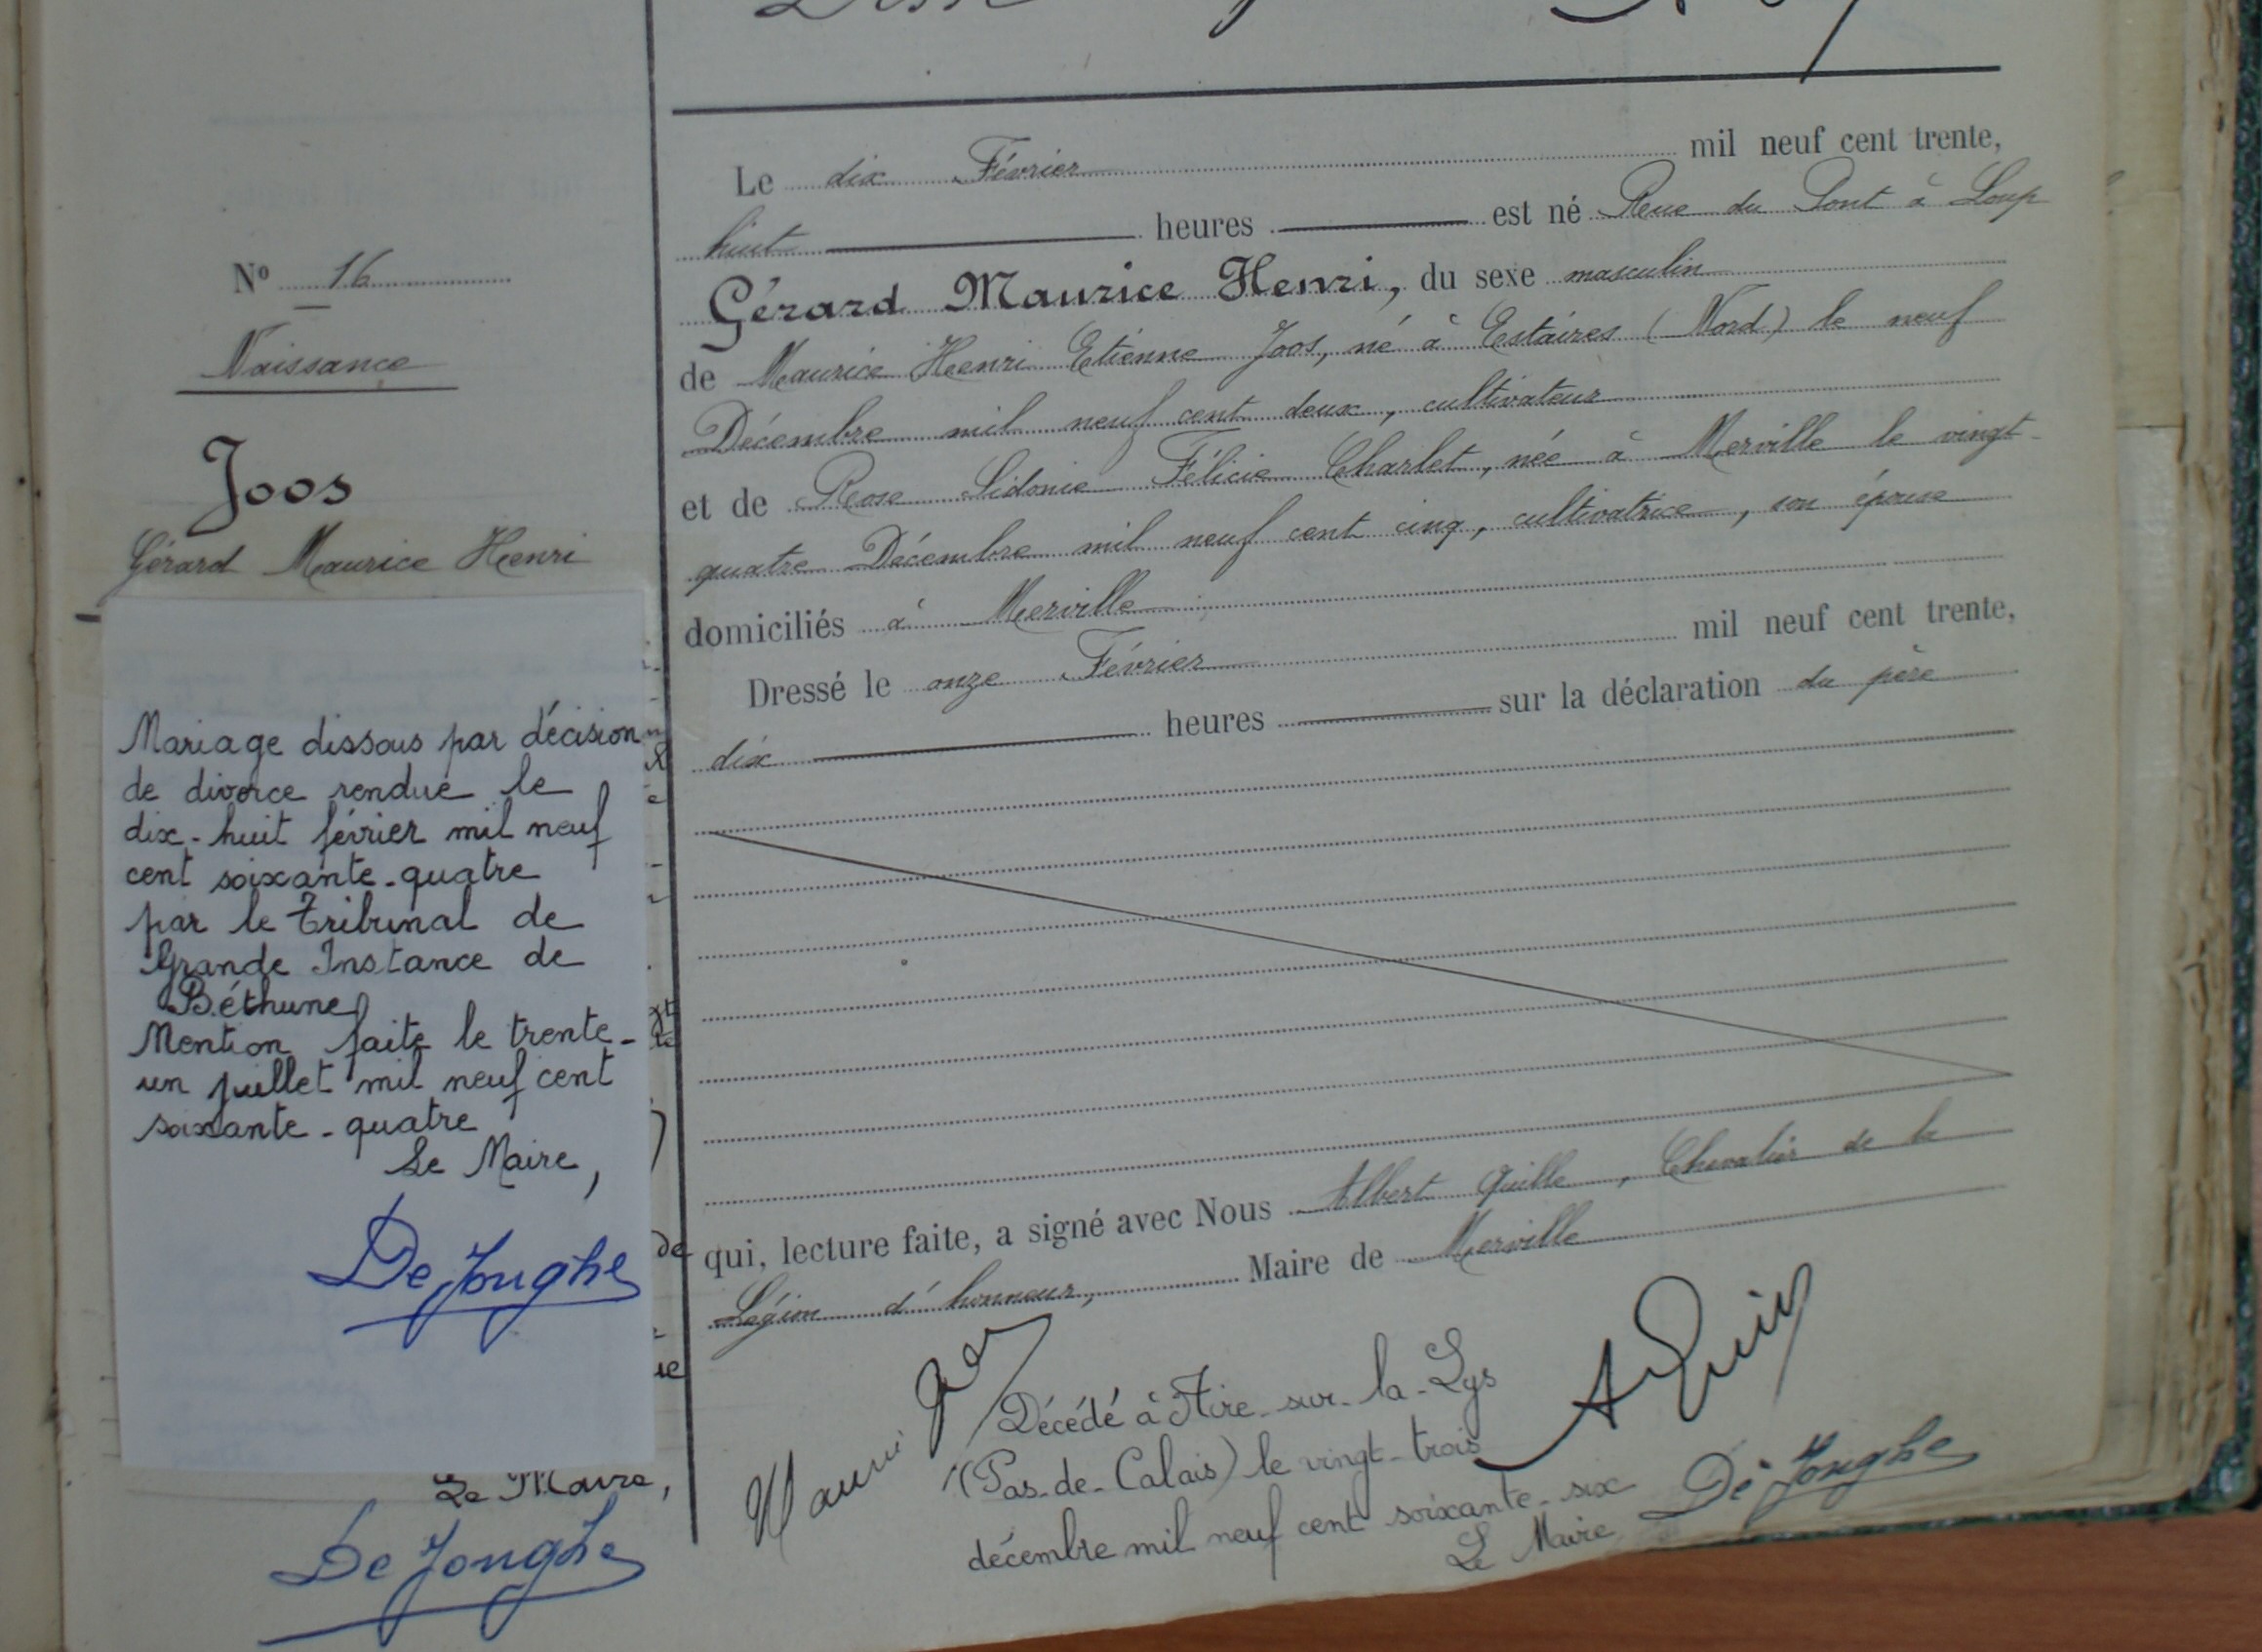 Nº 16
Naissance
Joos
Gérard Maurice Henri
Mariage dissous par décision
de divorce rendue le
dix-huit février mil neuf
cent soixante-quatre
par le Tribunal de
Grande Instance de
Béthune
Mention faite le trente-
un juillet mil neuf cent
soixante-quatre
Le Maire,
De Jonghe
Le Maire,
De Jonghe
Le dix Février mil neuf cent trente,
huit heures est né Rue du Pont à Loup
Gérard Maurice Henri, du sexe masculin
de Maurice Henri Etienne Joos, né à Estaires (Nord) le neuf
Décembre mil neuf cent deux, cultivateur
et de Rose Sidonie Félicie Charlet, née à Merville le vingt-
quatre Décembre mil neuf cent cinq, cultivatrice, son épouse
domiciliés à Merville
Dressé le onze Février mil neuf cent trente,
dix heures sur la déclaration du père
qui, lecture faite, a signé avec Nous Albert Quille, Chevalier de la
Légion d'honneur, Maire de Merville
Maurice Joos
Décédé à Aire-sur-la-Lys
(Pas-de-Calais) le vingt-trois
décembre mil neuf cent soixante-six
Le Maire De Jonghe